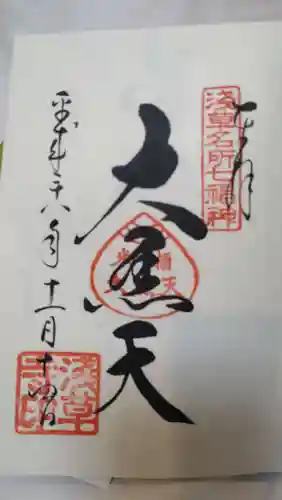 奉拝
浅草名所七福神
大黒天
平成二十八年十一月十四日
浅草